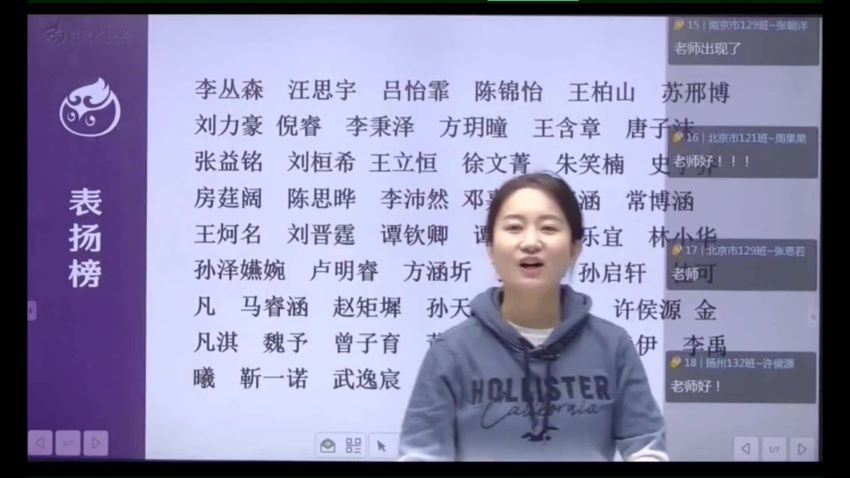 表扬榜
李丛森 汪思宇 吕怡霏 陈锦怡 王柏山 苏邢博
刘力豪 倪睿 李秉泽 方玥曈 王含章 唐子沫
张益铭 刘桓希 王立恒 徐文菁 朱笑楠 史子
房莛阔 陈思晔 李沛然 邓 涵 常博涵
王炣名 刘晋霆 谭钦卿 谭 乐宜 林小华
孙泽嬿婉 卢明睿 方涵圻 孙启轩 杜可
凡 马睿涵 赵矩墀 孙天 许侯源 金
凡淇 魏予 曾子育 伊 李禹
曦 靳一诺 武逸宸
15 | 南京市129班~张朝洋
老师出现了
16 | 北京市121班~周果果
老师好！！！
17 | 北京市129班~张恩若
老师
18 | 扬州132班~许侯源
老师好！
HOLLISTER
California
1/7
1/7